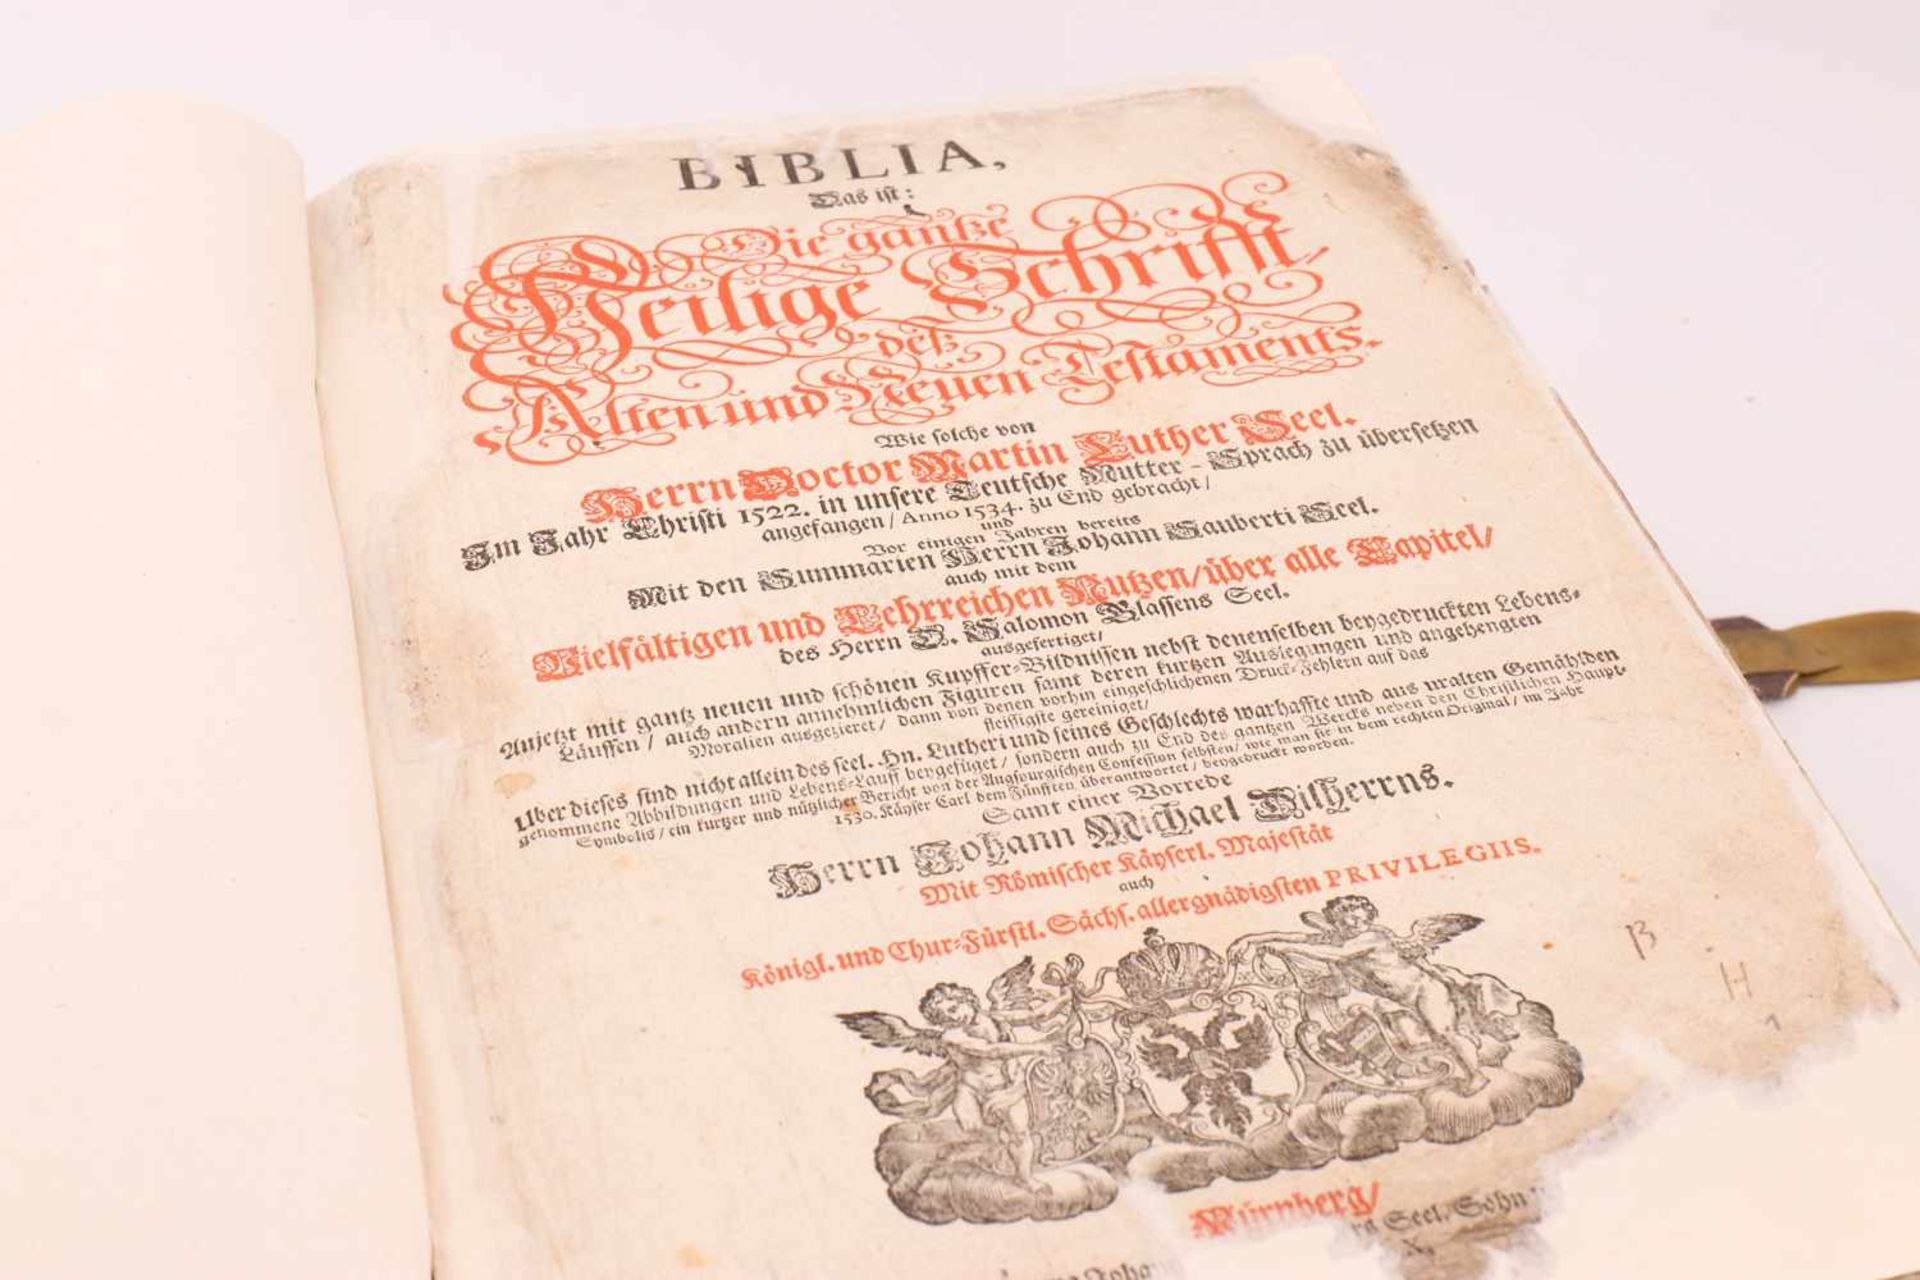 BIBLIA,
Das ist:
Die gantze
Heilige Schrifft
deß
Alten und Neuen Testaments.
Wie solche von
Herrn Doctor Martin Luther Seel.
Im Jahr Christi 1522. in unsere Teutsche Mutter-Sprach zu übersetzen
angefangen / Anno 1534. zu End gebracht /
und
Vor einigen Jahren bereits
Mit den Summarien Herrn Johann Sauberti Seel.
auch mit dem
Vielfältigen und Lehrreichen Nutzen / über alle Capitel /
des Herrn D. Salomon Glassens Seel.
ausgefertiget /
Anjetzt mit gantz neuen und schönen Kupffer-Bildnissen nebst denenselben beygedruckten Lebens-
Läuffen / auch andern annehmlichen Figuren samt deren kurtzen Auslegungen und angehengten
Moralien ausgezieret / dann von denen vorhin eingeschlichenen Druck-Fehlern auf das
fleissigste gereiniget /
Uber dieses sind nicht allein des seel. Hn. Lutheri und seines Geschlechts warhaffte und aus uralten Gemählden
genommene Abbildungen und Lebens-Lauff beygefüget / sondern auch zu End des gantzen Wercks neben den Christlichen Haupt-
Symbolis / ein kurtzer und nützlicher Bericht von der Augspurgischen Confession selbsten / wie man sie in dem rechten Original / im Jahr
1530. Käyser Carl dem Fünfften überantwortet / beygedruckt worden.
Samt einer Vorrede
Herrn Johann Michael Dilherrns.
Mit Römischer Käyserl. Majestät
auch
Königl. und Chur-Fürstl. Sächs. allergnädigsten PRIVILEGIIS.
B
H
1
Nürnberg /
Seel. Sohn